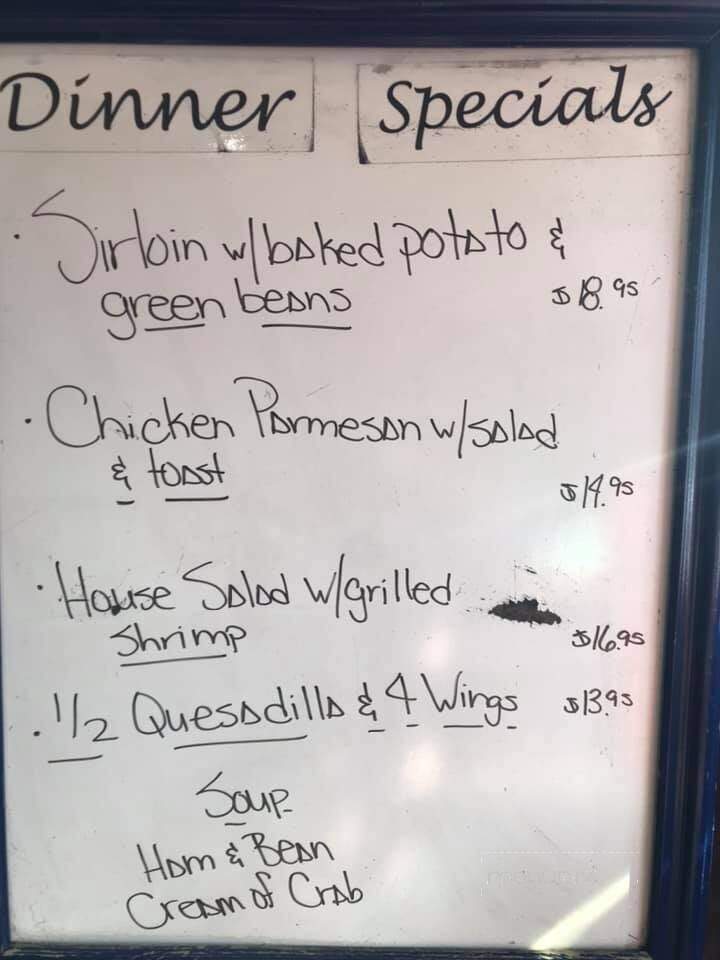 Dinner Specials
· Sirloin w/baked potato &
green beans $18.95
· Chicken Parmesan w/salad
& toast $14.95
· House Salad w/grilled
Shrimp $16.95
· 1/2 Quesadilla & 4 Wings $13.95
Soup
Ham & Bean
Cream of Crab